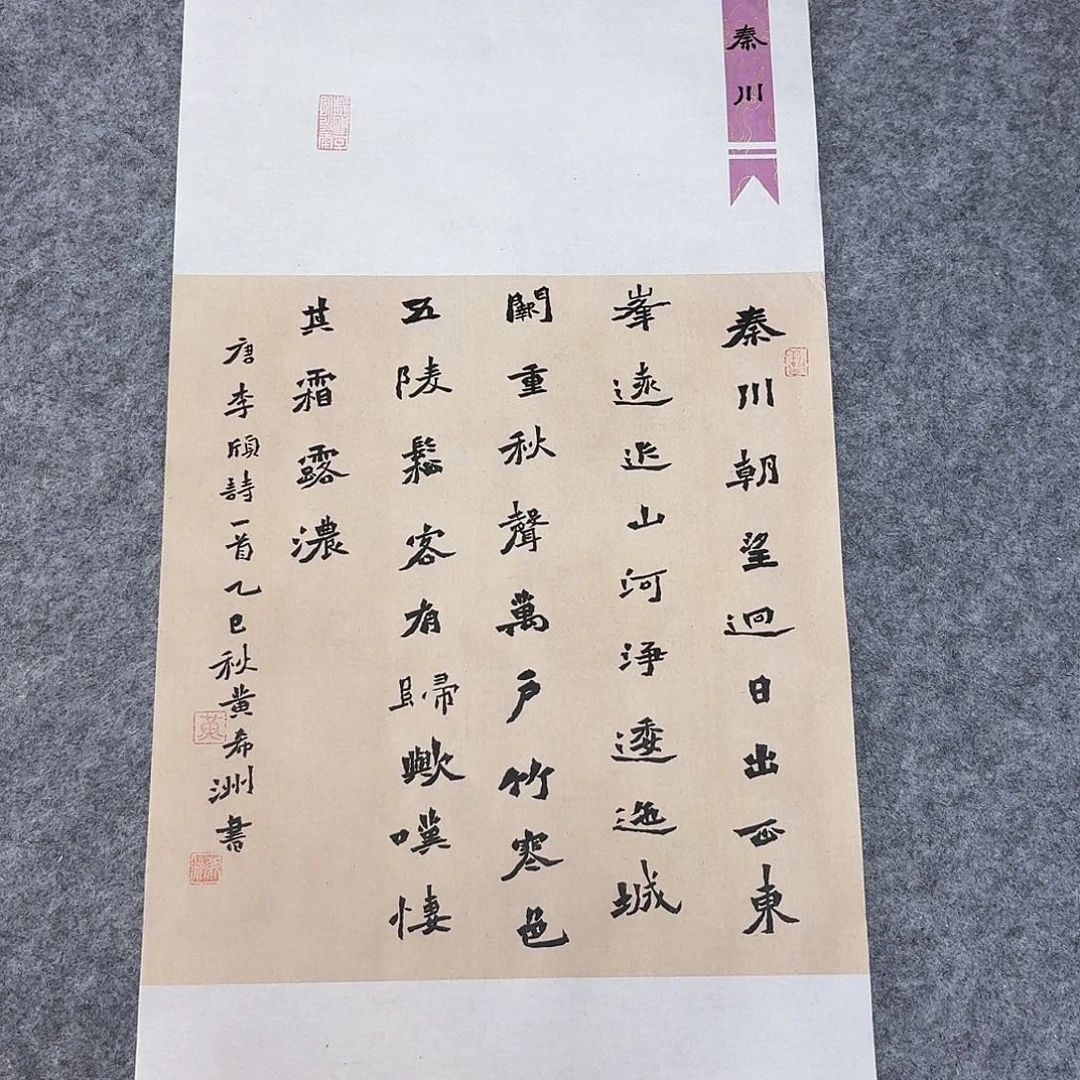 秦川
秦川朝望迥日出正東
峯遠近山河浄逶迤城
闕重秋聲萬户竹寒色
五陵鬆客有歸歟嘆悽
其霜露濃
唐李頎詩一首乙巳秋黄希洲書
黄